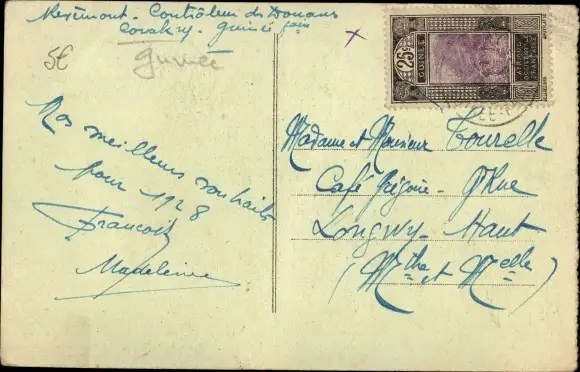 Merémont - Contrôleur des Douanes
Conakry - Guinée fçaise
5€ Guinée
Nos meilleurs souhaits
pour 1928
François
Madeleine
25c
GUINÉE
AFRIQUE
OCCIDENTALE
FRANÇAISE
Madame et Monsieur Tourelle
Café Grégoire -
Longwy - Haut
(Mthe et Melle)